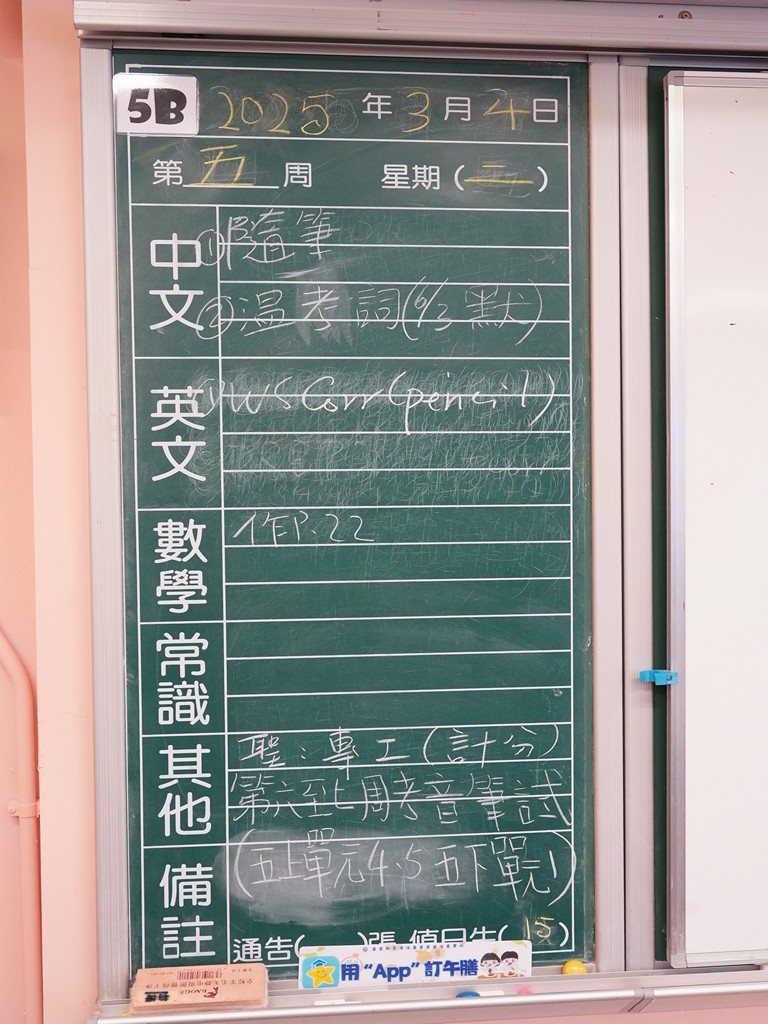 5B 2025年3月4日
第五周 星期(二)
中文
①隨筆
②溫考詞(6/3 默)
英文
① WS Corr (pencil)
數學
作P.22
常識
其他
聖:專工(計分)
第六至七周考音筆試
備註
(五上單元4.5 五下單元1)
通告( )張 值日生(15)
用“App”訂午膳